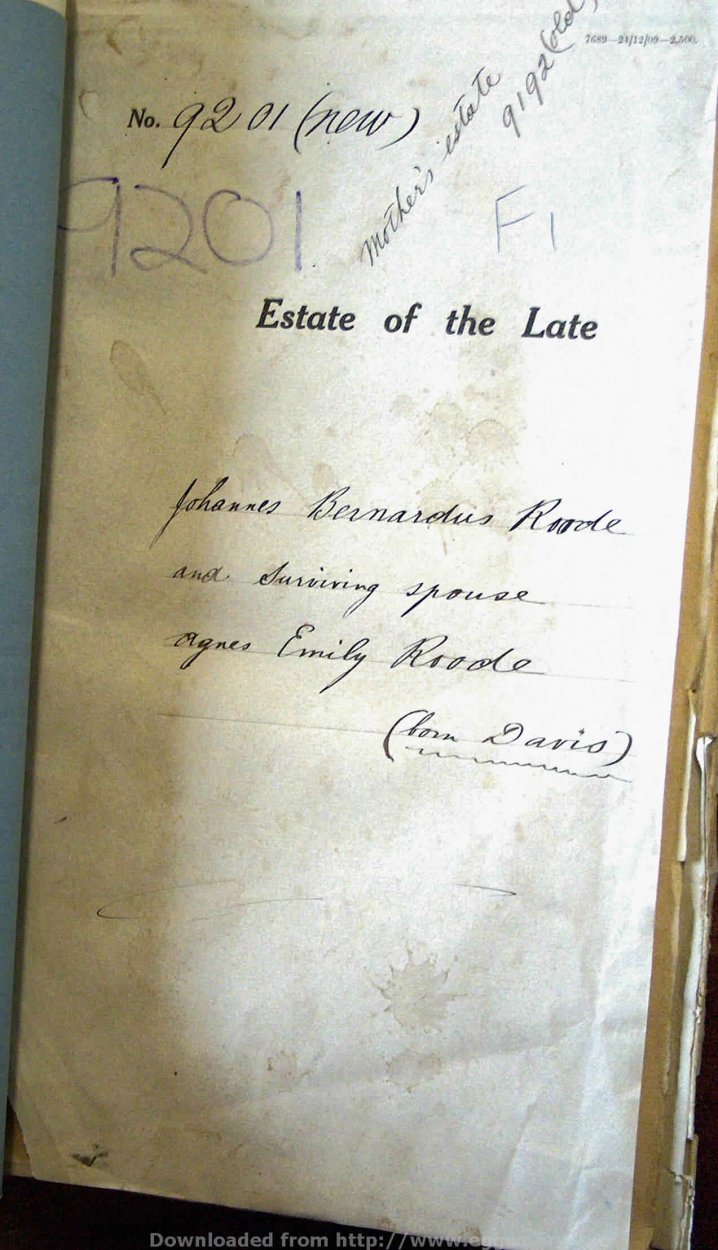 7689—21/12/09—2,500.
No. 9201 (new)
Mother's estate 9192 (old)
9201
F1
Estate of the Late
Johannes Bernardus Roode
and Surviving spouse
Agnes Emily Roode
(born Davis)
Downloaded from http://www.